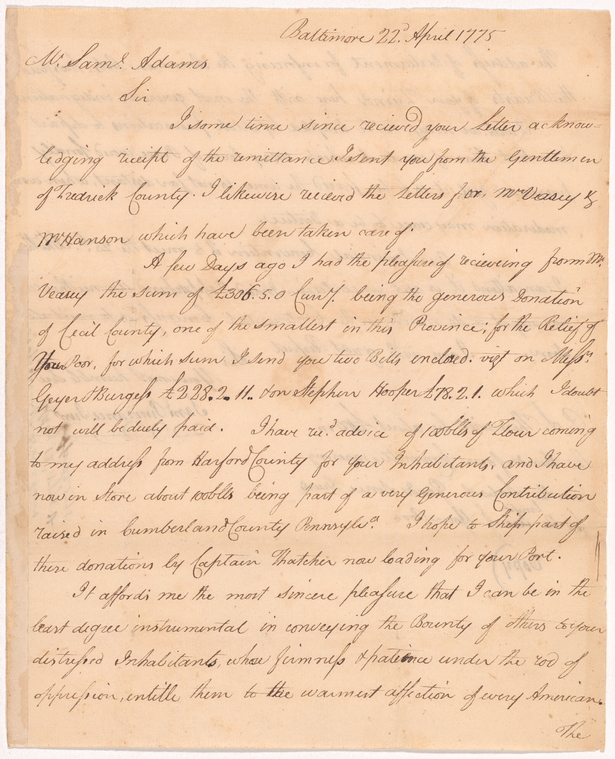 Baltimore 22d. April 1775
Mr. Saml. Adams
Sir
I some time since recieved your Letter acknow-
ledging receipt of the remittance I sent you from the Gentlemen
of Fredrick County. I likewise recieved the Letters for Mr Veasey &
Mr Hanson which have been taken care of.
A few Days ago I had the pleasure of recieveing from Mr.
Veasey the sum of £306.5.0 Curry. being the generous Donation
of Cecil County, one of the smallest in this Province; for the Relief of
Your Poor, for which sum I send you two Bills inclosed. vizt on Messrs
Geyer & Burgess £228.2.11. & on Stephen Hooper £78.2.1. which I doubt
not will be duely paid. I have recd. advice of 100 blls of Flour coming
to my address from Harford County for your Inhabitants, and I have
now in Store about 100 blls being part of a very Generous Contribution
raised in Cumberland County Pennsylva. I hope to Ship part of
these donations by Captain Thatcher now loading for your Port.
It affords me the most sincere pleasure that I can be in the
least degree instrumental in conveying the Bounty of others to your
distressed Inhabitants, whose firmness & patience under the rod of
oppression, entitle them to the warmest affection of every American.
The